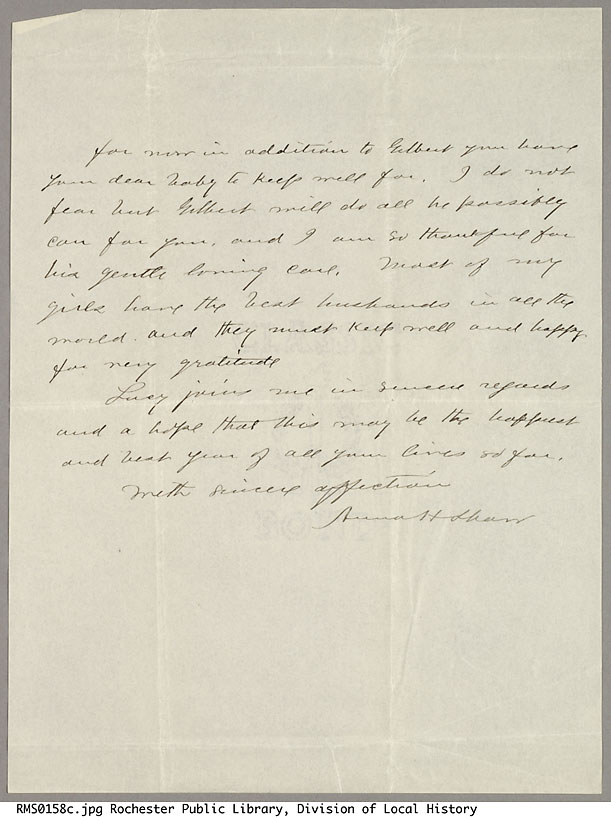 for now in addition to Gilbert you have
your dear baby to keep well for. I do not
fear but Gilbert will do all he possibly
can for you, and I am so thankful for
his gentle loving care. Most of my
girls have the best husbands in all the
world. and they must keep well and happy
for very gratitude
Lucy joins me in sincere regards
and a hope that this may be the happiest
and best year of all your lives so far.
With sincere affection
Anna H Shaw
RMS0158c.jpg Rochester Public Library, Division of Local History